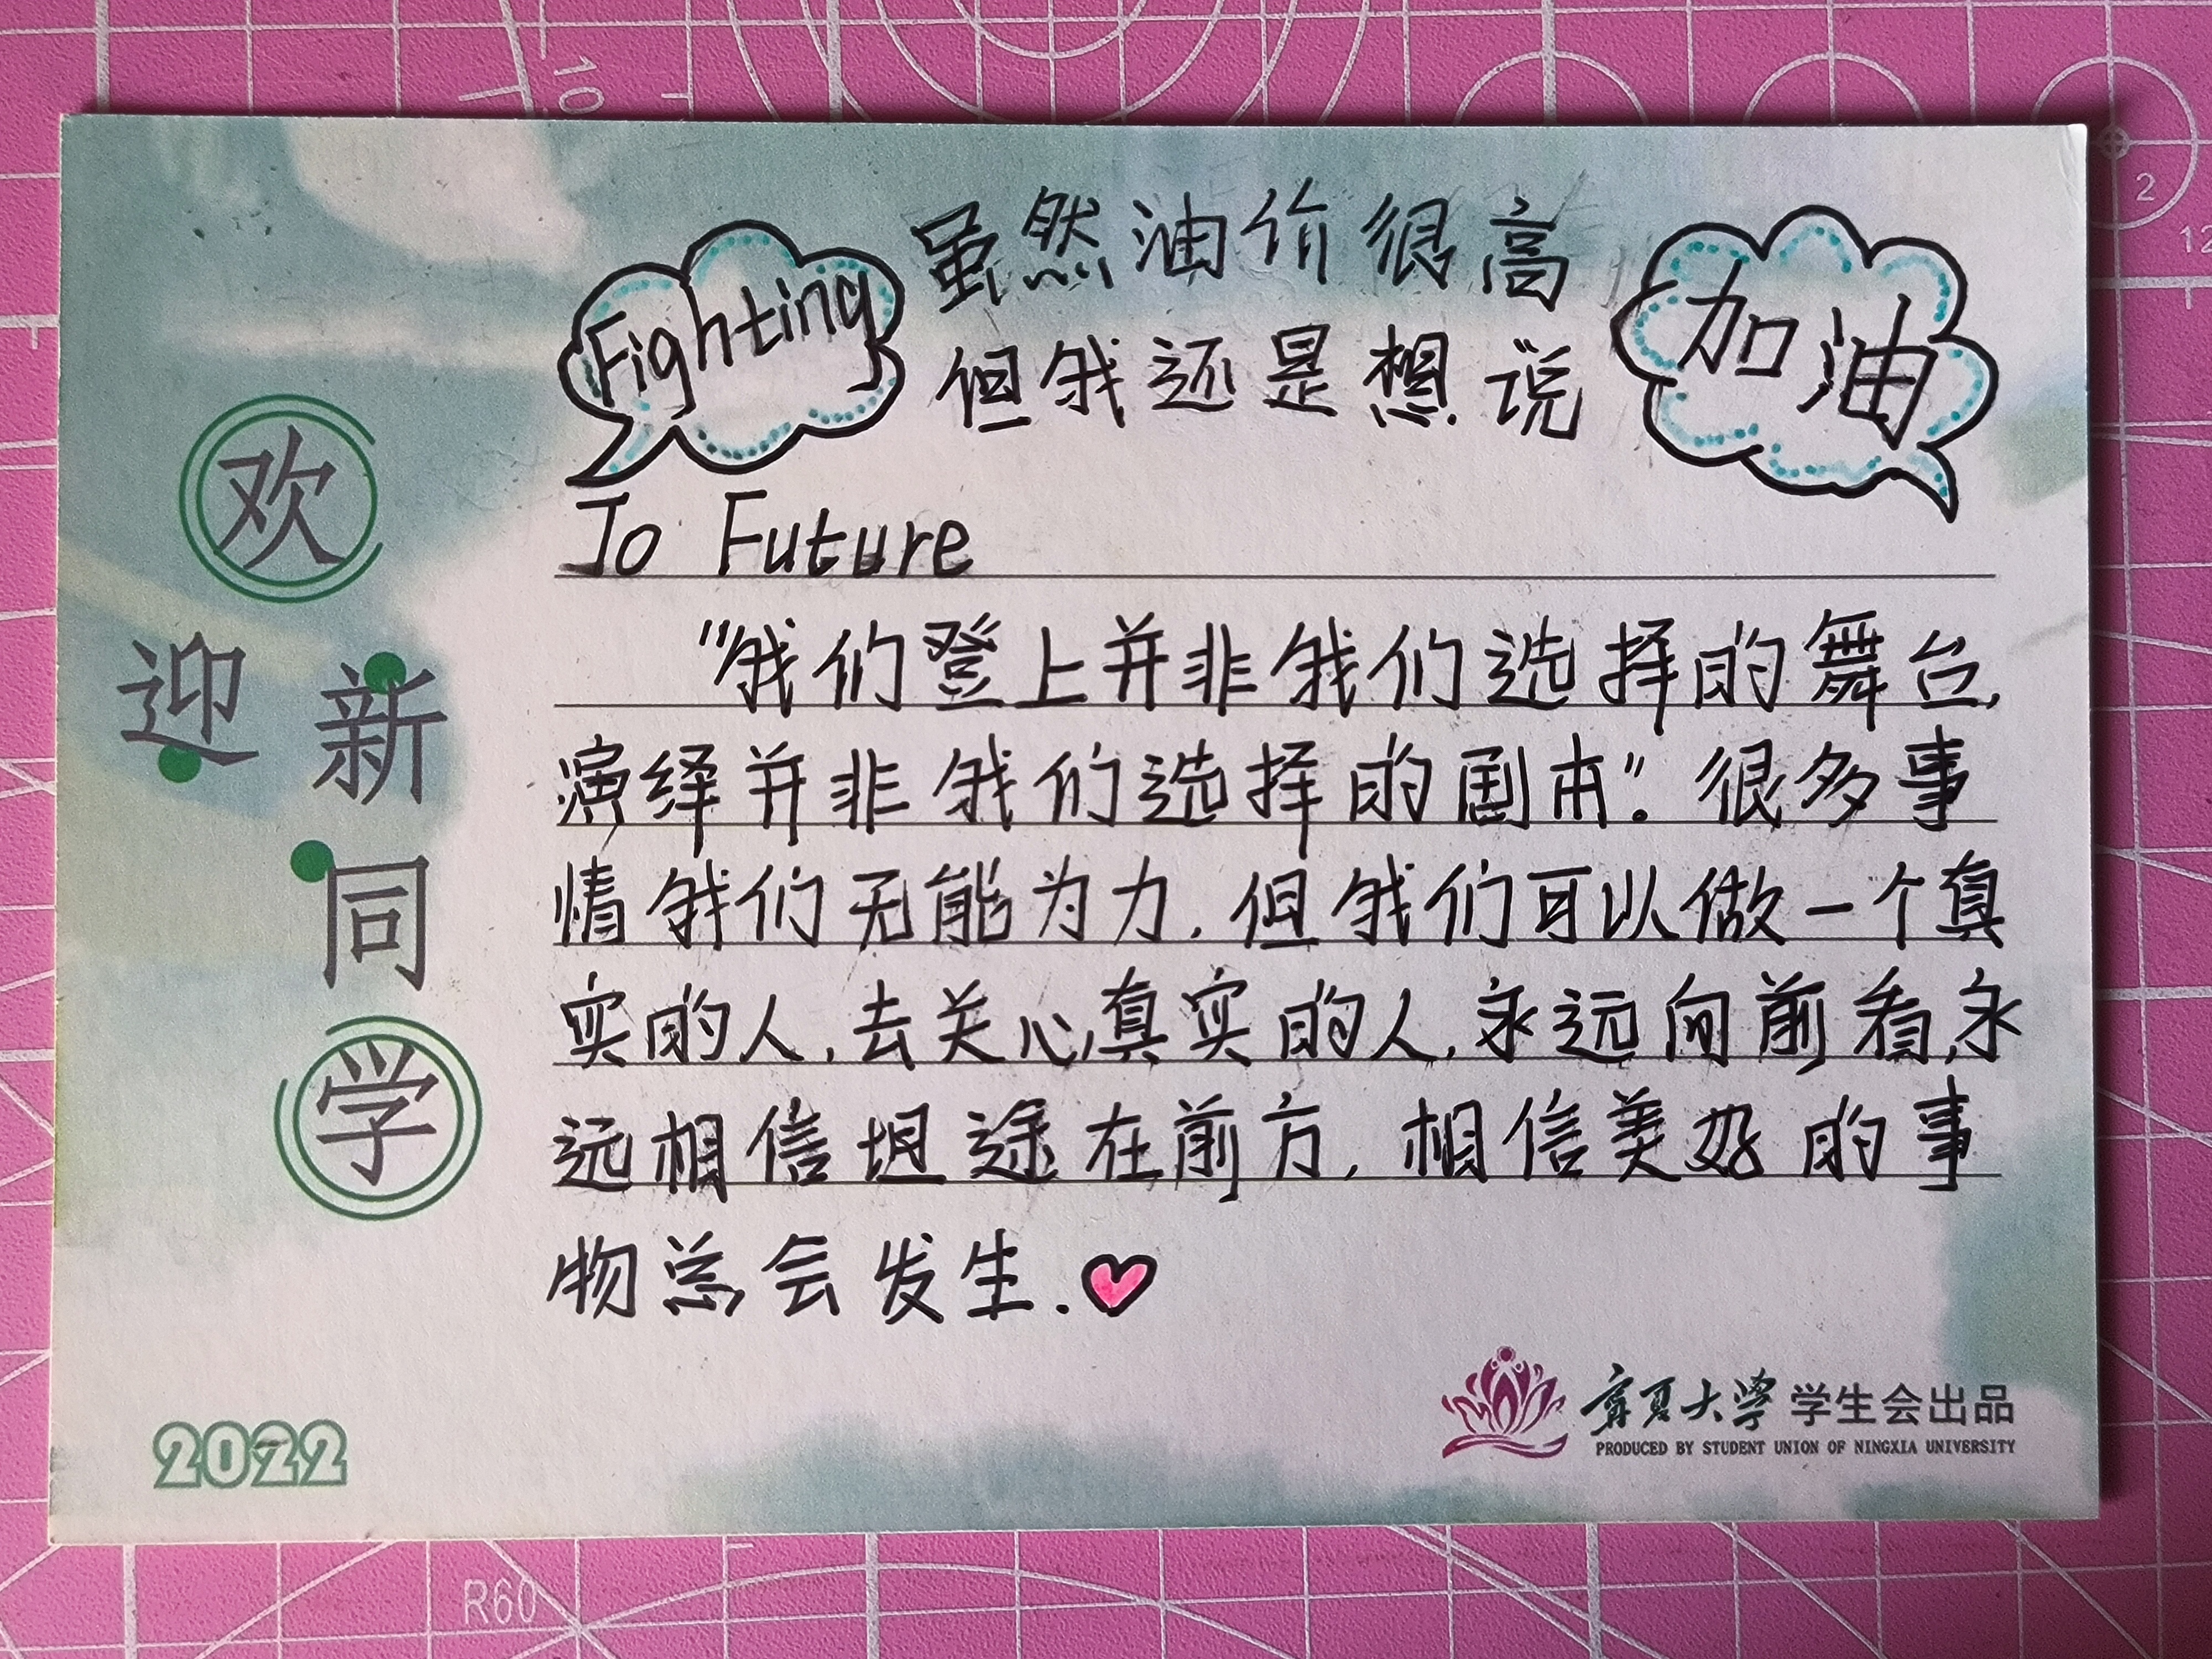 Fighting
虽然油价很高
但我还是想说
加油
To Future
"我们登上并非我们选择的舞台,
演绎并非我们选择的剧本"。很多事
情我们无能为力,但我们可以做一个真
实的人,去关心真实的人,永远向前看,永
远相信坦途在前方,相信美好的事
物总会发生.
欢
迎
新
同
学
2022
宁夏大学 学生会出品
PRODUCED BY STUDENT UNION OF NINGXIA UNIVERSITY
10
2
12
R60